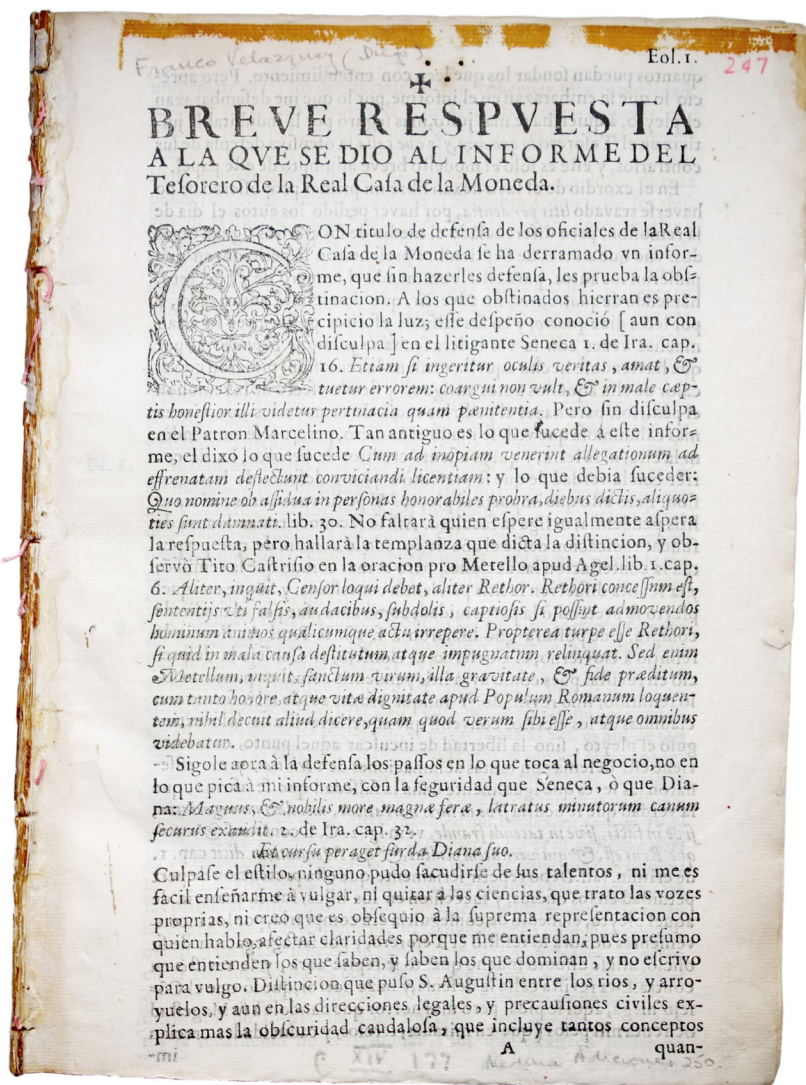 Franco Velazquez (Diego)
Eol.1.
247
✠
BREVE RESPVESTA
A LA QVE SE DIO AL INFORME DEL
Teſorero de la Real Caſa de la Moneda.
CON titulo de defenſa de los oficiales de laReal
Caſa de la Moneda ſe ha derramado vn infor-
me, que ſin hazerles defenſa, les prueba la obſ-
tinacion. A los que obſtinados hierran es pre-
cipicio la luz; eſſe deſpeño conoció [ aun con
diſculpa ] en el litigante Seneca 1. de Ira. cap.
16. Etiam ſi ingeritur oculis veritas, amat, &
tuetur errorem: coargui non vult, & in male cæp-
tis honeſtior illi videtur pertinacia quam pænitentia. Pero ſin diſculpa
en el Patron Marcelino. Tan antiguo es lo que ſucede á eſte infor-
me, el dixo lo que ſucede Cum ad inopiam venerint allegationum ad
effrenatam deflectunt conviciandi licentiam: y lo que debia ſuceder:
Quo nomine ob aſſidua in perſonas honorabiles probra, diebus dictis, aliquo-
ties ſunt damnati. lib. 30. No faltarà quien eſpere igualmente aſpera
la reſpueſta, pero hallarà la templanza que dicta la diſtincion, y ob-
ſervò Tito Caſtriſio en la oracion pro Metello apud Agel. lib. 1. cap.
6. Aliter, inquit, Cenſor loqui debet, aliter Rethor. Rethori conceſſnm eſt,
ſententijs vti falſis, audacibus, ſubdolis, captioſis ſi poſſint admovendos
hominum animos qualicumque actu irrepere. Propterea turpe eſſe Rethori,
ſi quid in mala cauſa deſtitutum atque impugnatnm relinquat. Sed enim
Metellum, inquit, ſanctum virum, illa gravitate, & fide præditum,
cum tanto honore, atque vitæ dignitate apud Populum Romanum loquen-
tem, nihil decuit aliud dicere, quam quod verum ſibi eſſe, atque omnibus
videbatur.
Sigole aora à la defenſa los paſſos en lo que toca al negocio, no en
lo que pica à mi informe, con la ſeguridad que Seneca, ò que Dia-
na: Magnus, & nobilis more magnæ feræ, latratus minutorum canum
ſecurus exaudit. 2. de Ira. cap. 32.
Et curſu peraget ſurda Diana ſuo.
Culpaſe el eſtilo, ninguno pudo ſacudirſe de ſus talentos, ni me es
facil enſeñarme à vulgar, ni quitar à las ciencias, que trato las vozes
proprias, ni creo que es obſequio à la ſuprema repreſentacion con
quien hablo, afectar claridades porque me entiendan, pues preſumo
que entienden los que ſaben, y ſaben los que dominan, y no eſcrivo
para vulgo. Diſtincion que puſo S. Auguſtin entre los rios, y arro-
yuelos, y aun en las direcciones legales, y precauſiones civiles ex-
plica mas la obſcuridad caudaloſa, que incluye tantos conceptos
A quan-
XIV 177 Medina Adiciones 250.